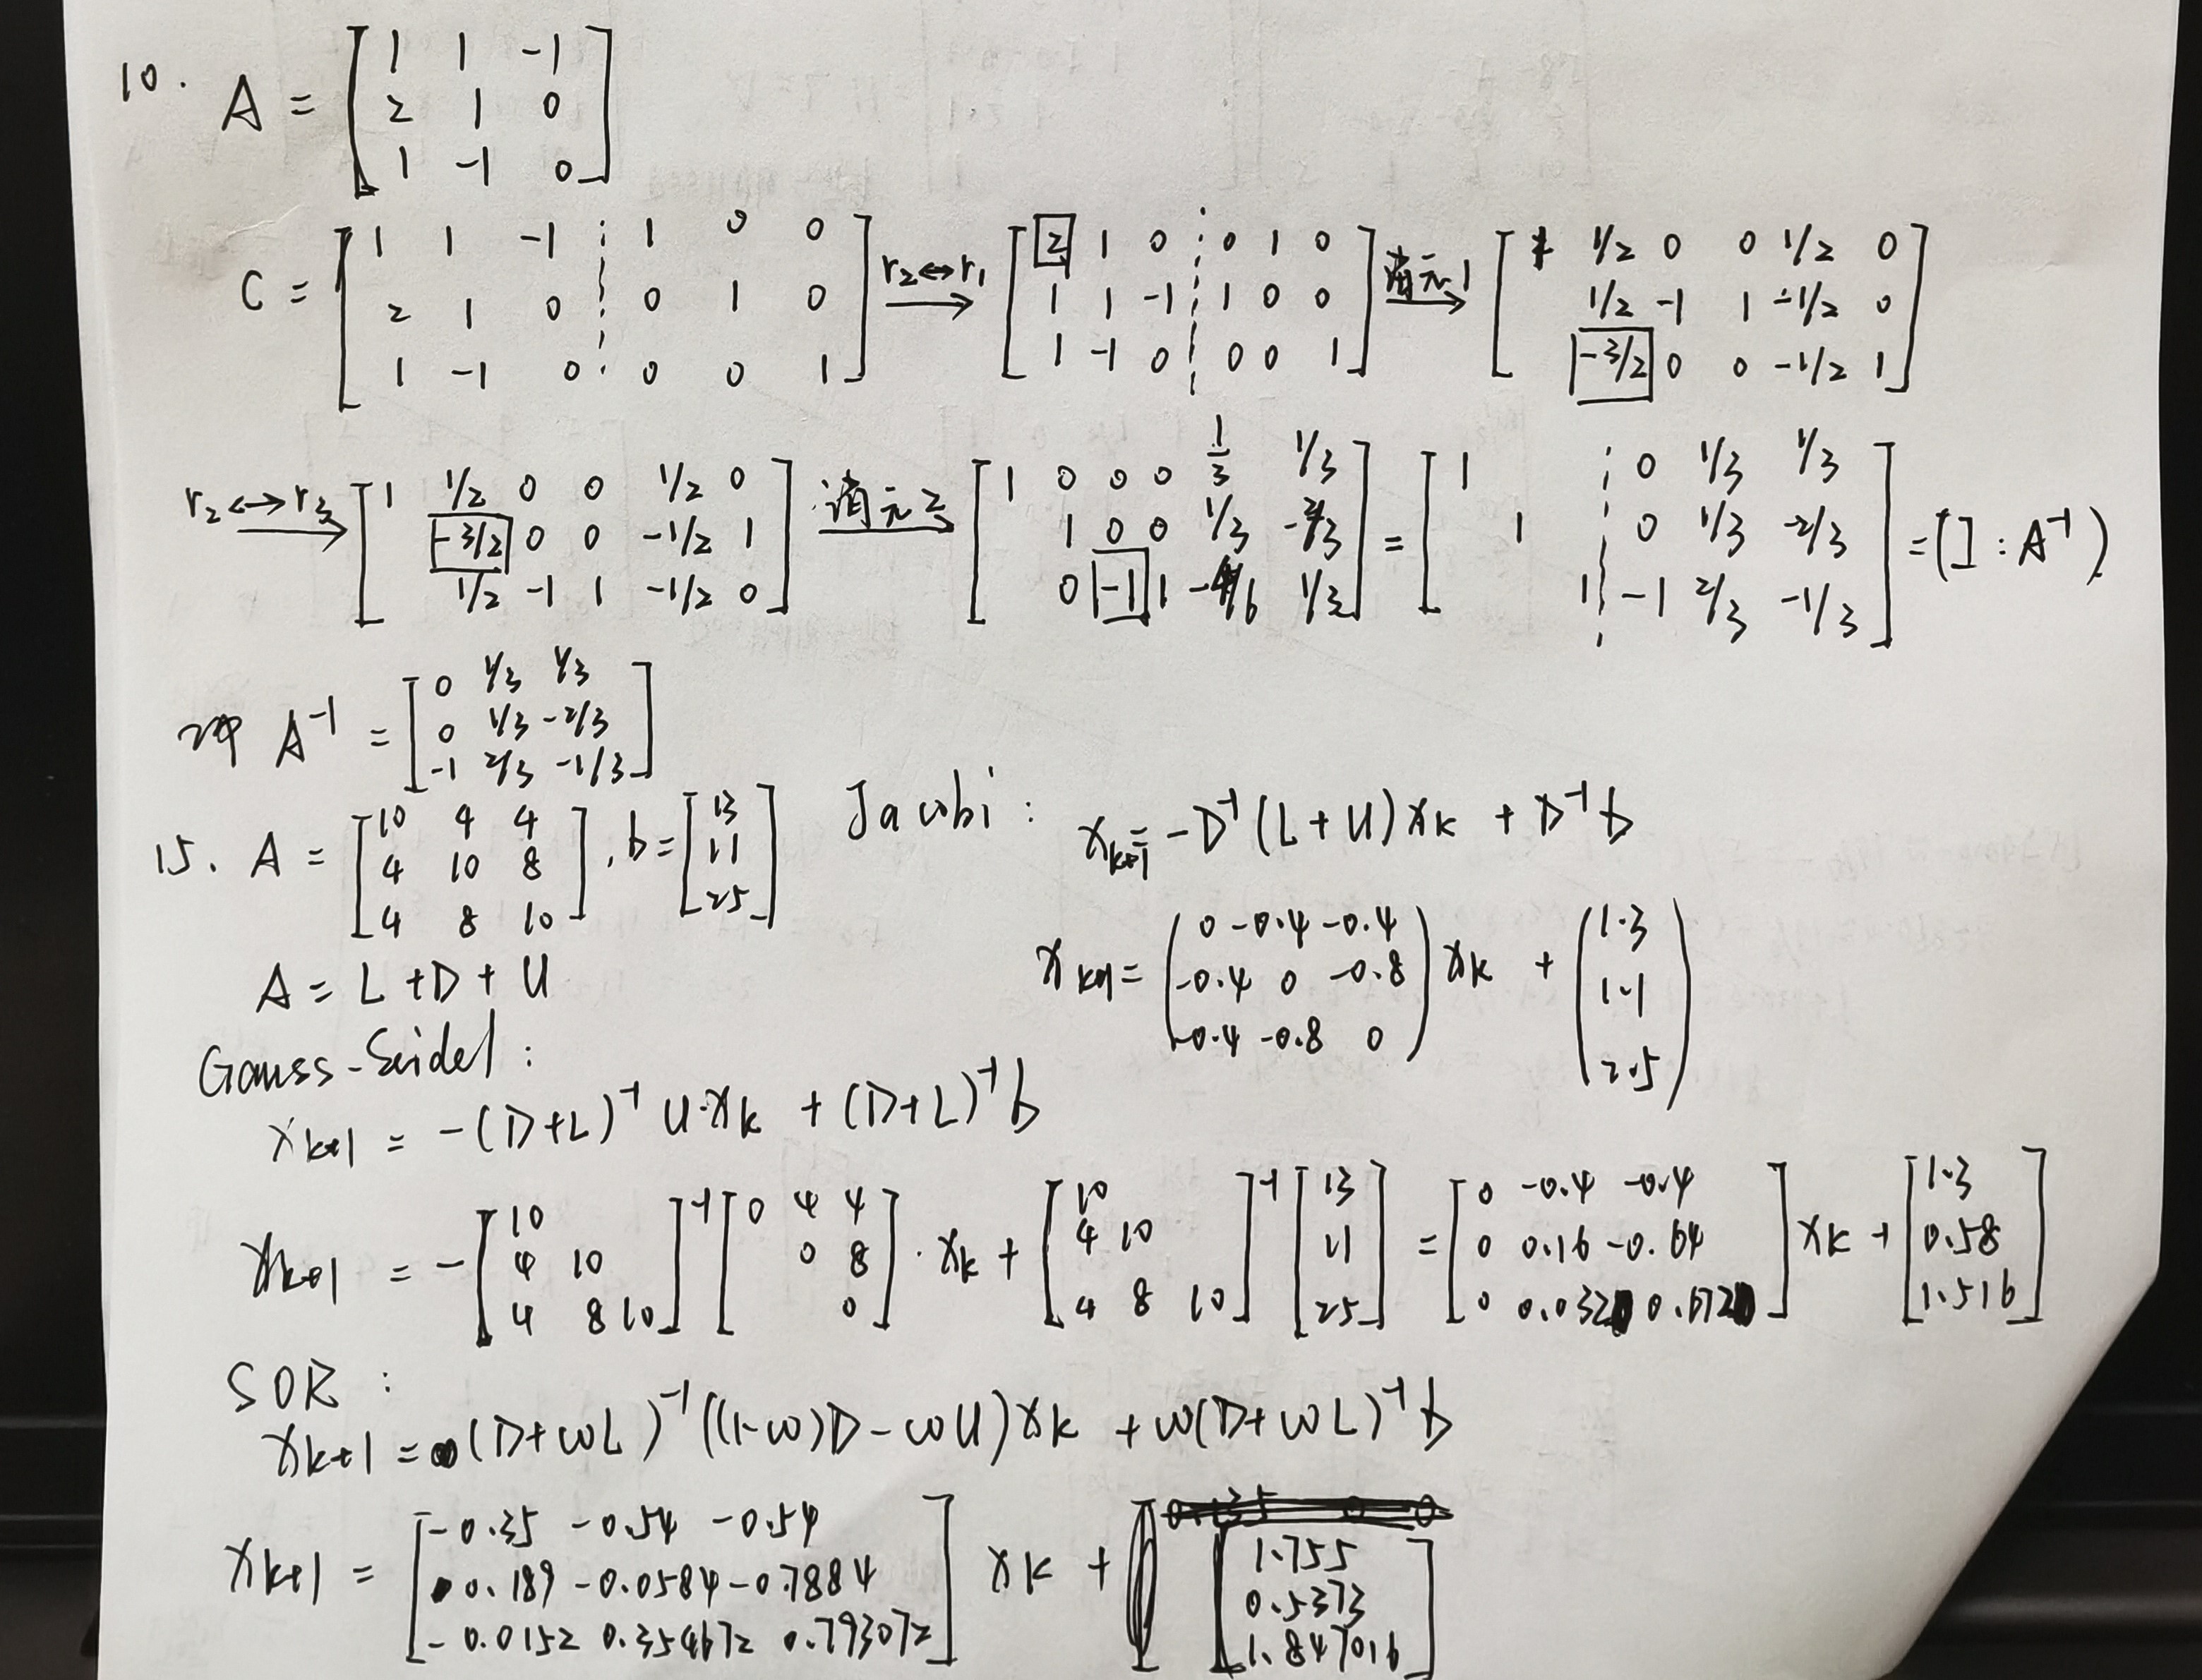 10. A = [1 1 -1; 2 1 0; 1 -1 0]
C = [1 1 -1 ⋮ 1 0 0; 2 1 0 ⋮ 0 1 0; 1 -1 0 ⋮ 0 0 1] r₂↔r₁ → [2 1 0 ⋮ 0 1 0; 1 1 -1 ⋮ 1 0 0; 1 -1 0 ⋮ 0 0 1] 消元1 → [1 1/2 0 0 1/2 0; 1/2 -1 1 -1/2 0; -3/2 0 0 -1/2 1]
r₂↔r₃ → [1 1/2 0 0 1/2 0; -3/2 0 0 -1/2 1; 1/2 -1 1 -1/2 0] 消元2 → [1 0 0 0 1/3 1/3; 1 0 0 1/3 -2/3; 0 -1 1 -4/6 1/3] = [1 ⋮ 0 1/3 1/3; 1 ⋮ 0 1/3 -2/3; 1 ⋮ -1 2/3 -1/3] = (I ⋮ A⁻¹)
即 A⁻¹ = [0 1/3 1/3; 0 1/3 -2/3; -1 2/3 -1/3]
15. A = [10 4 4; 4 10 8; 4 8 10], b = [13; 11; 25] Jacobi: xₖ₊₁ = -D⁻¹(L+U)xₖ + D⁻¹b
A = L+D+U
xₖ₊₁ = (0 -0.4 -0.4; -0.4 0 -0.8; -0.4 -0.8 0) xₖ + (1.3; 1.1; 2.5)
Gauss-Seidel:
xₖ₊₁ = -(D+L)⁻¹U·xₖ + (D+L)⁻¹b
xₖ₊₁ = -[10; 4 10; 4 8 10]⁻¹[0 4 4; 0 8; 0]·xₖ + [10; 4 10; 4 8 10]⁻¹[13; 11; 25] = [0 -0.4 -0.4; 0 0.16 -0.64; 0 0.032 0.672] xₖ + [1.3; 0.58; 1.516]
SOR:
xₖ₊₁ = (D+ωL)⁻¹((1-ω)D-ωU)xₖ + ω(D+ωL)⁻¹b
xₖ₊₁ = [-0.35 -0.54 -0.54; 0.189 -0.0584 -0.7884; -0.0152 0.354672 0.793072] xₖ + [1.755; 0.5373; 1.847016]